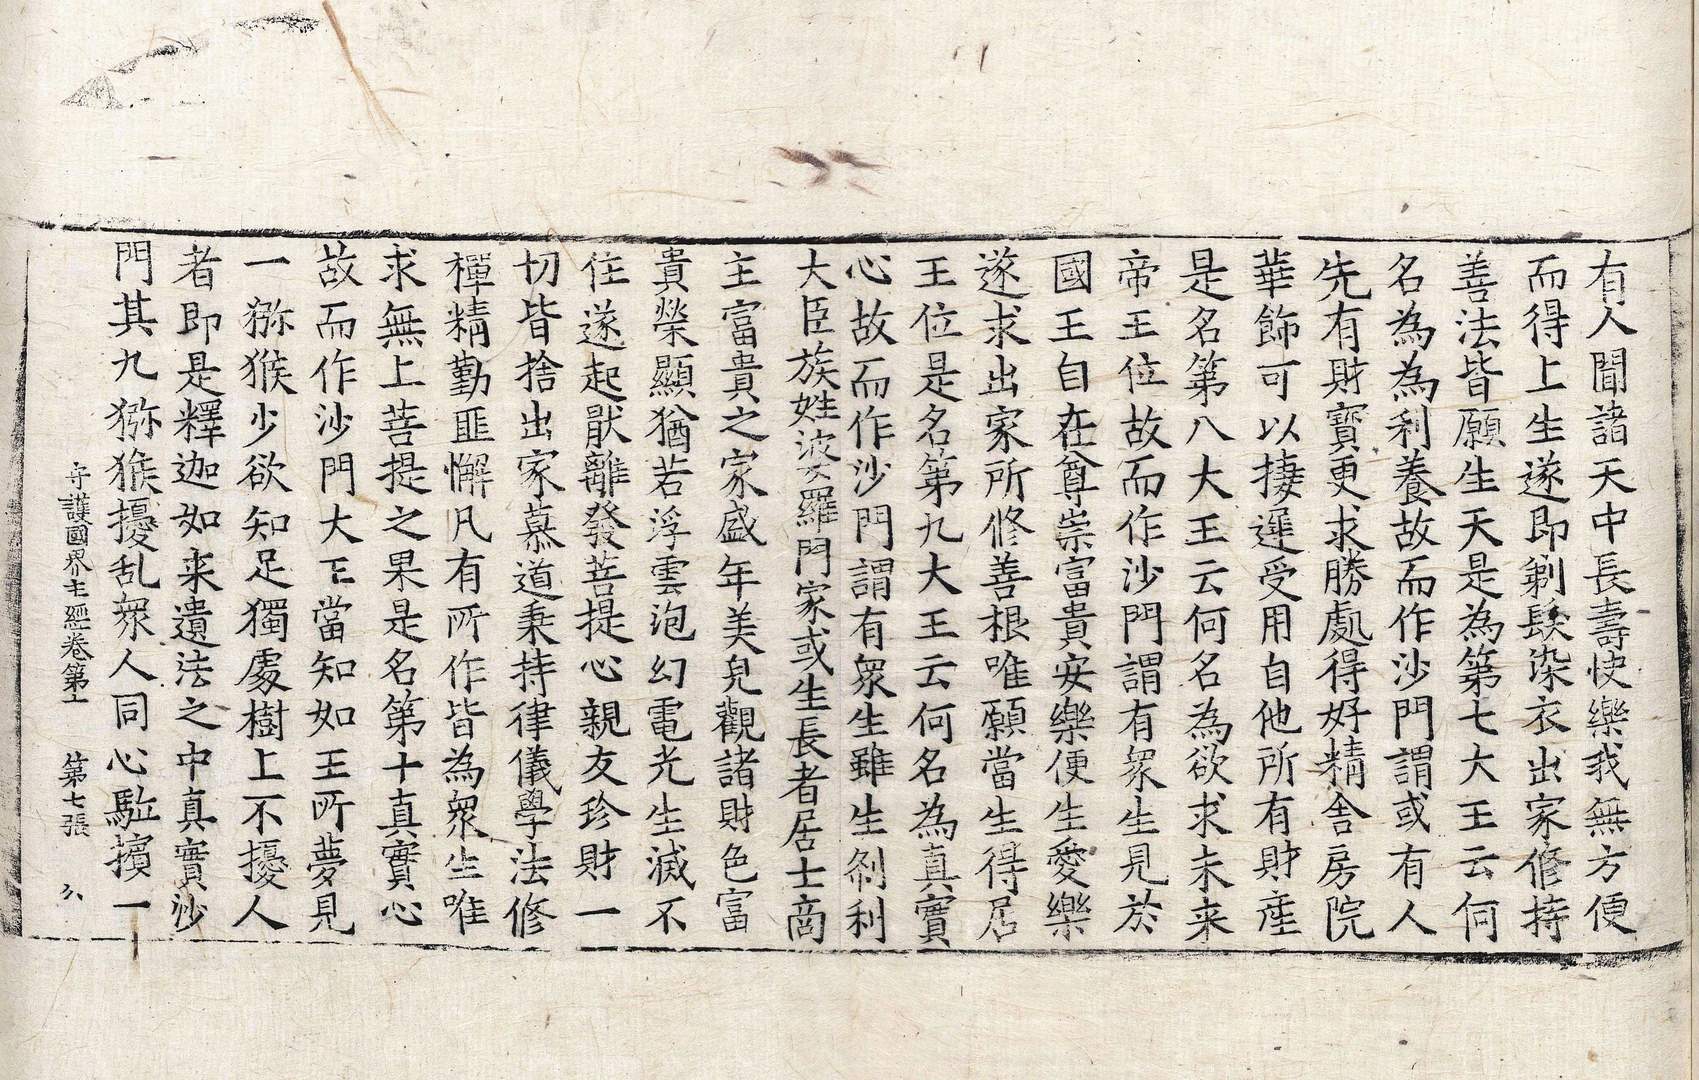 有人聞諸天中長壽快樂我無方便
而得上生遂即剃髮染衣出家修持
善法皆願生天是為第七大王云何
名為為利養故而作沙門謂或有人
先有財寶更求勝處得好精舍房院
華飾可以捿遲受用自他所有財産
是名第八大王云何名為欲求未来
帝王位故而作沙門謂有衆生見於
國王自在尊崇富貴安樂便生愛樂
遂求出家所修善根唯願當生得居
王位是名第九大王云何名為真實
心故而作沙門謂有衆生雖生剎利
大臣族姓婆羅門家或生長者居士商
主富貴之家盛年美皃觀諸財色富
貴榮顯猶若浮雲泡幻電光生滅不
住遂起猒離發菩提心親友珍財一
切皆捨出家慕道秉持律儀學法修
禪精勤匪懈凡有所作皆為衆生唯
求無上菩提之果是名第十真實心
故而作沙門大王當知如王所夢見
一猕猴少欲知足獨處樹上不擾人
者即是釋迦如来遺法之中真實沙
門其九猕猴擾乱衆人同心駈擯一
守護國界主經卷第十 第七張 久